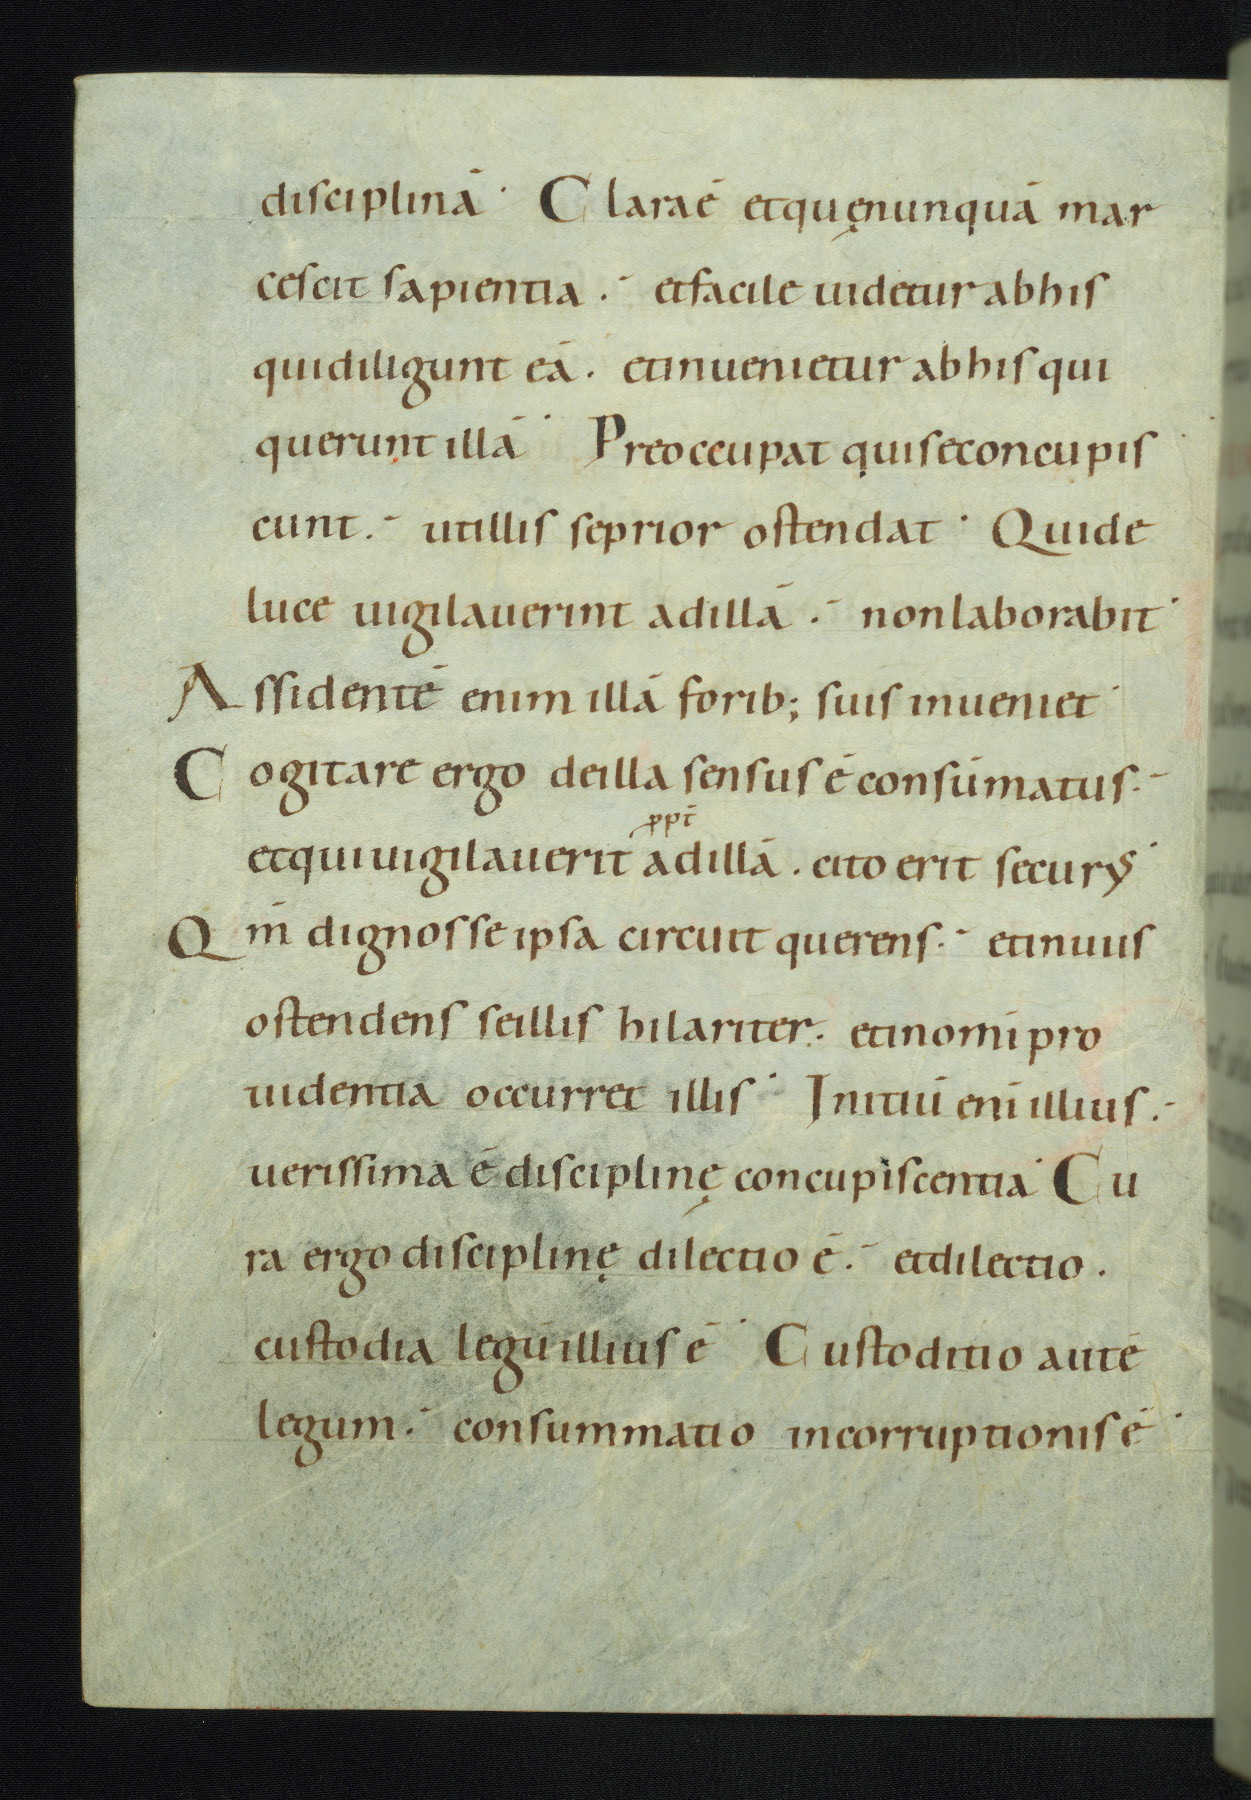 disciplinā· Clara ē et quę nunquā mar
cescit sapientia .- et facile uidetur ab his
qui diligunt eā . et inuenietur ab his qui
querunt illā· Preoccupat qui se concupis
cunt .- ut illis se prior ostendat· Qui de
luce uigilauerint ad illā .- non laborabit·
Assidentē enim illā forib; suis inueniet·
Cogitare ergo de illa sensus ē consūmatus .-
ppt̄
et qui uigilauerit ad illā . cito erit securus·
Qm̄ dignos se ipsa circuit querens .- et in uiis
ostendens se illis hilariter . et in omī pro
uidentia occurret illis· Initiū enī illius .-
uerissima ē disciplinę concupiscentia· Cu
ra ergo disciplinę dilectio ē .- et dilectio .
custodia legū illius ē· Custoditio autē
legum .- consummatio incorruptionis ē·